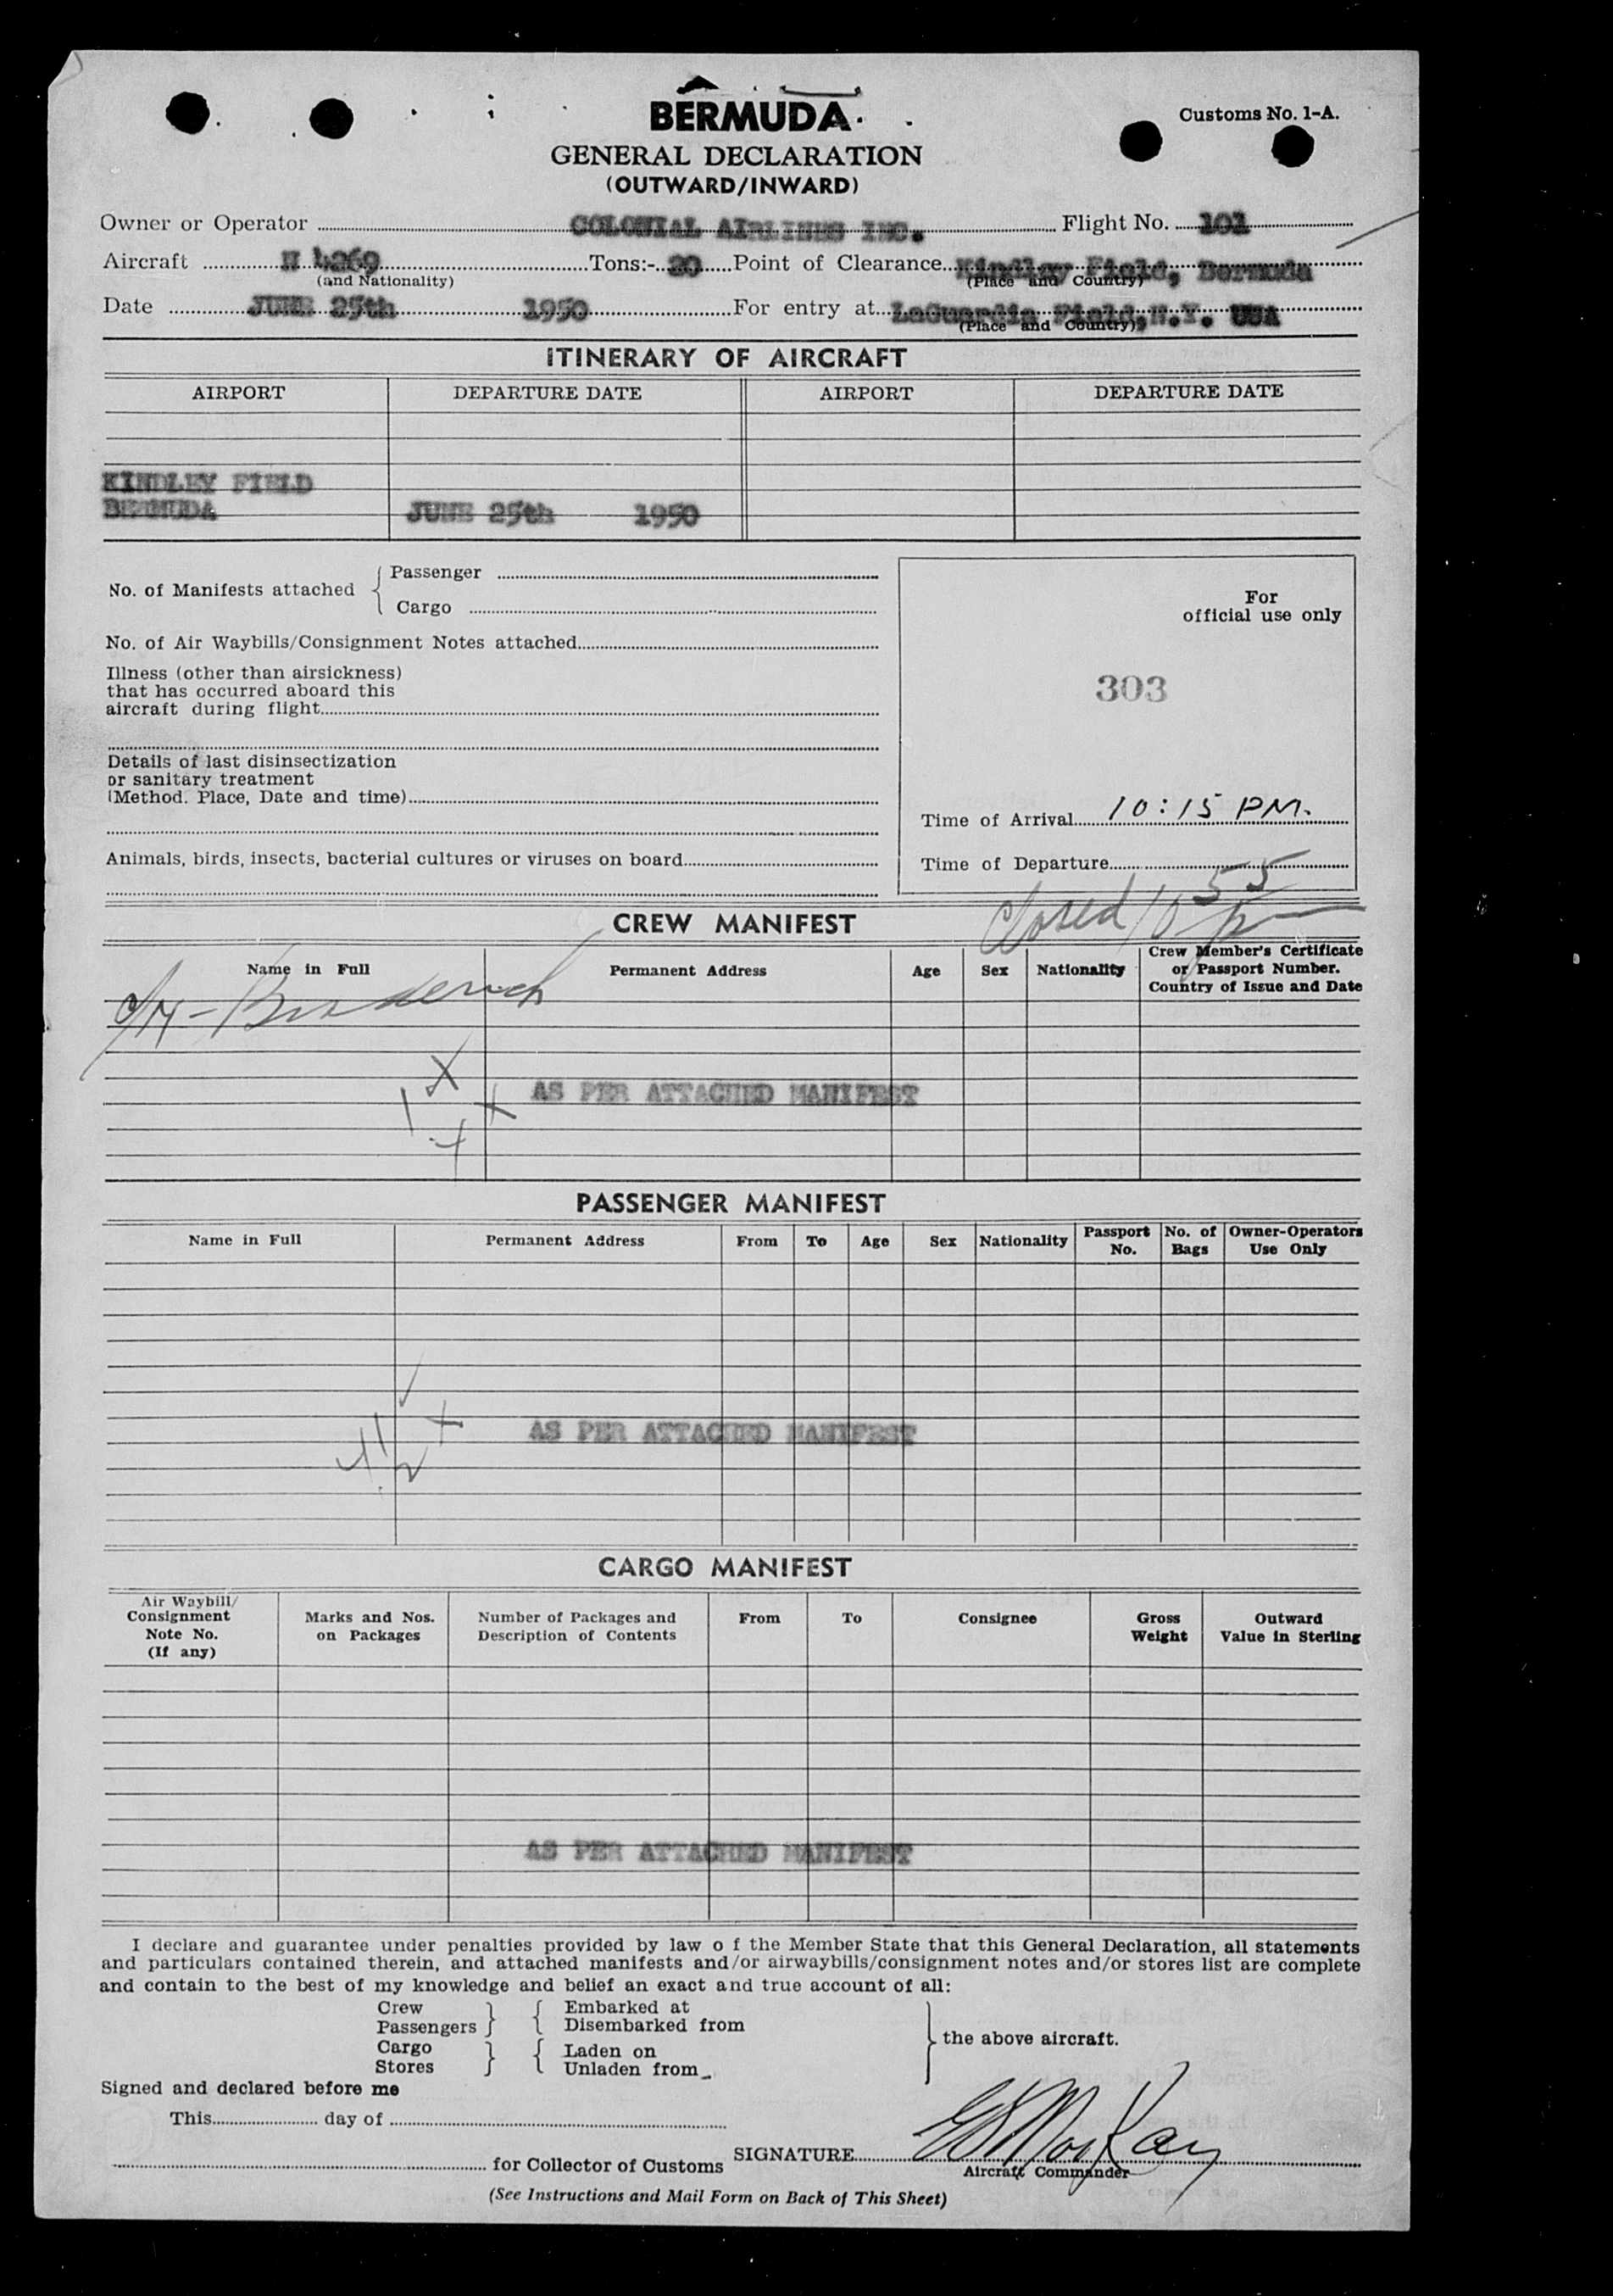 BERMUDA
Customs No. 1-A.
GENERAL DECLARATION
(OUTWARD/INWARD)
Owner or Operator COLONIAL AIRLINES INC. Flight No. 101
Aircraft N 4269 Tons:- 20 Point of Clearance Kindley Field, Bermuda
(and Nationality) (Place and Country)
Date JUNE 25th 1950 For entry at LaGuardia Field, N.Y. USA
(Place and Country)
ITINERARY OF AIRCRAFT
AIRPORT DEPARTURE DATE AIRPORT DEPARTURE DATE
KINDLEY FIELD
BERMUDA JUNE 25th 1950
No. of Manifests attached { Passenger
Cargo
No. of Air Waybills/Consignment Notes attached
Illness (other than airsickness)
that has occurred aboard this
aircraft during flight
Details of last disinsectization
or sanitary treatment
(Method. Place, Date and time)
Animals, birds, insects, bacterial cultures or viruses on board
For
official use only
303
Time of Arrival 10:15 PM.
Time of Departure
closed 10 55
CREW MANIFEST
Name in Full Permanent Address Age Sex Nationality Crew Member's Certificate
or Passport Number.
Country of Issue and Date
AS PER ATTACHED MANIFEST
PASSENGER MANIFEST
Name in Full Permanent Address From To Age Sex Nationality Passport No. No. of Bags Owner-Operators Use Only
AS PER ATTACHED MANIFEST
CARGO MANIFEST
Air Waybill/
Consignment
Note No.
(If any)
Marks and Nos.
on Packages
Number of Packages and
Description of Contents
From To Consignee Gross
Weight
Outward
Value in Sterling
AS PER ATTACHED MANIFEST
I declare and guarantee under penalties provided by law o f the Member State that this General Declaration, all statements
and particulars contained therein, and attached manifests and/or airwaybills/consignment notes and/or stores list are complete
and contain to the best of my knowledge and belief an exact and true account of all:
Crew } { Embarked at
Passengers } { Disembarked from
} the above aircraft.
Cargo } { Laden on
Stores } { Unladen from
Signed and declared before me
This day of
for Collector of Customs SIGNATURE
Aircraft Commander
(See Instructions and Mail Form on Back of This Sheet)